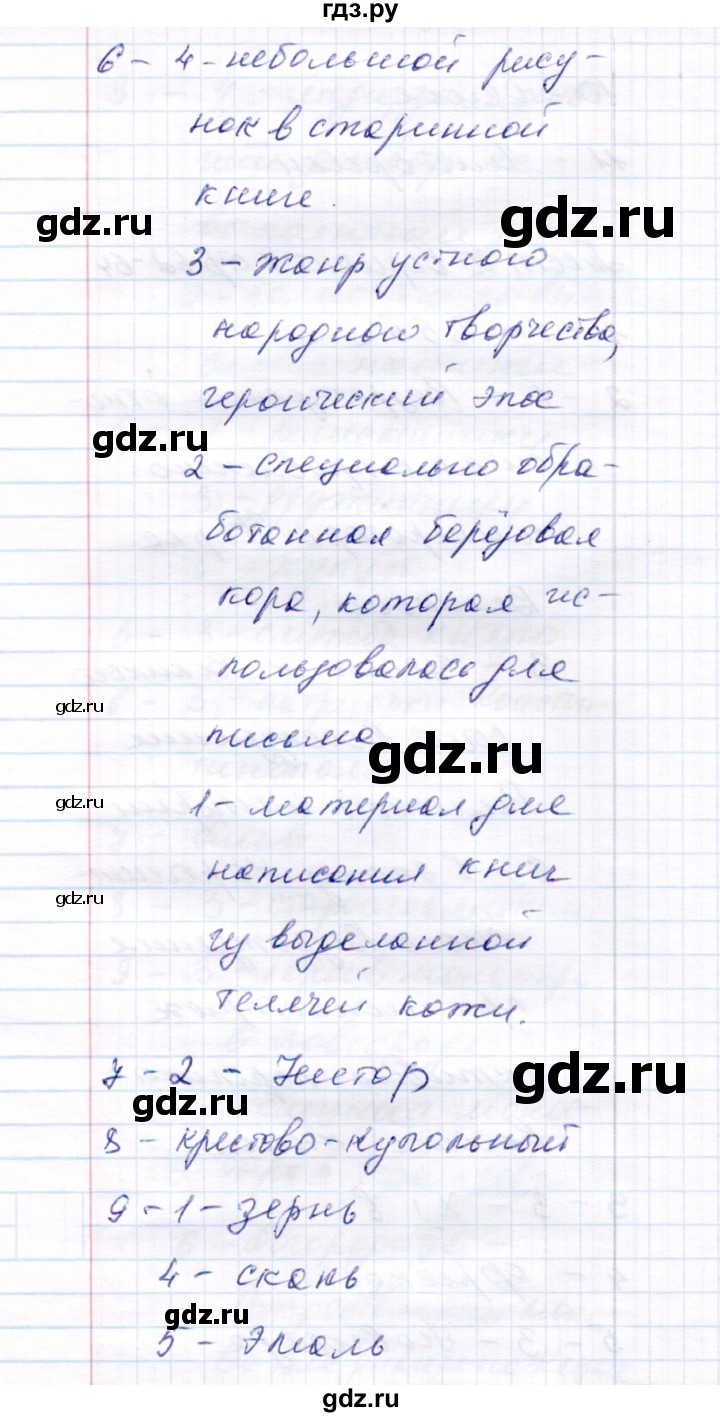 гдз.ру
6 - 4 - небольшой рису-
нок в старинной
книге.
gdz.ru gdz.ru
3 - жанр устного
народного творчества,
героический эпос
gdz.ru
2 - специально обра-
ботанная берёзовая
кора, которая ис-
пользовалась для
gdz.ru
письма
gdz.ru
gdz.ru
1 - материал для
написания книг
gdz.ru
из выделанной
телячей кожи.
7 - 2 - Нестор
gdz.ru
gdz.ru
8 - крестово-купольный
9 - 1 - зернь
4 - скань
gdz.ru
5 - Эмаль
gdz.ru